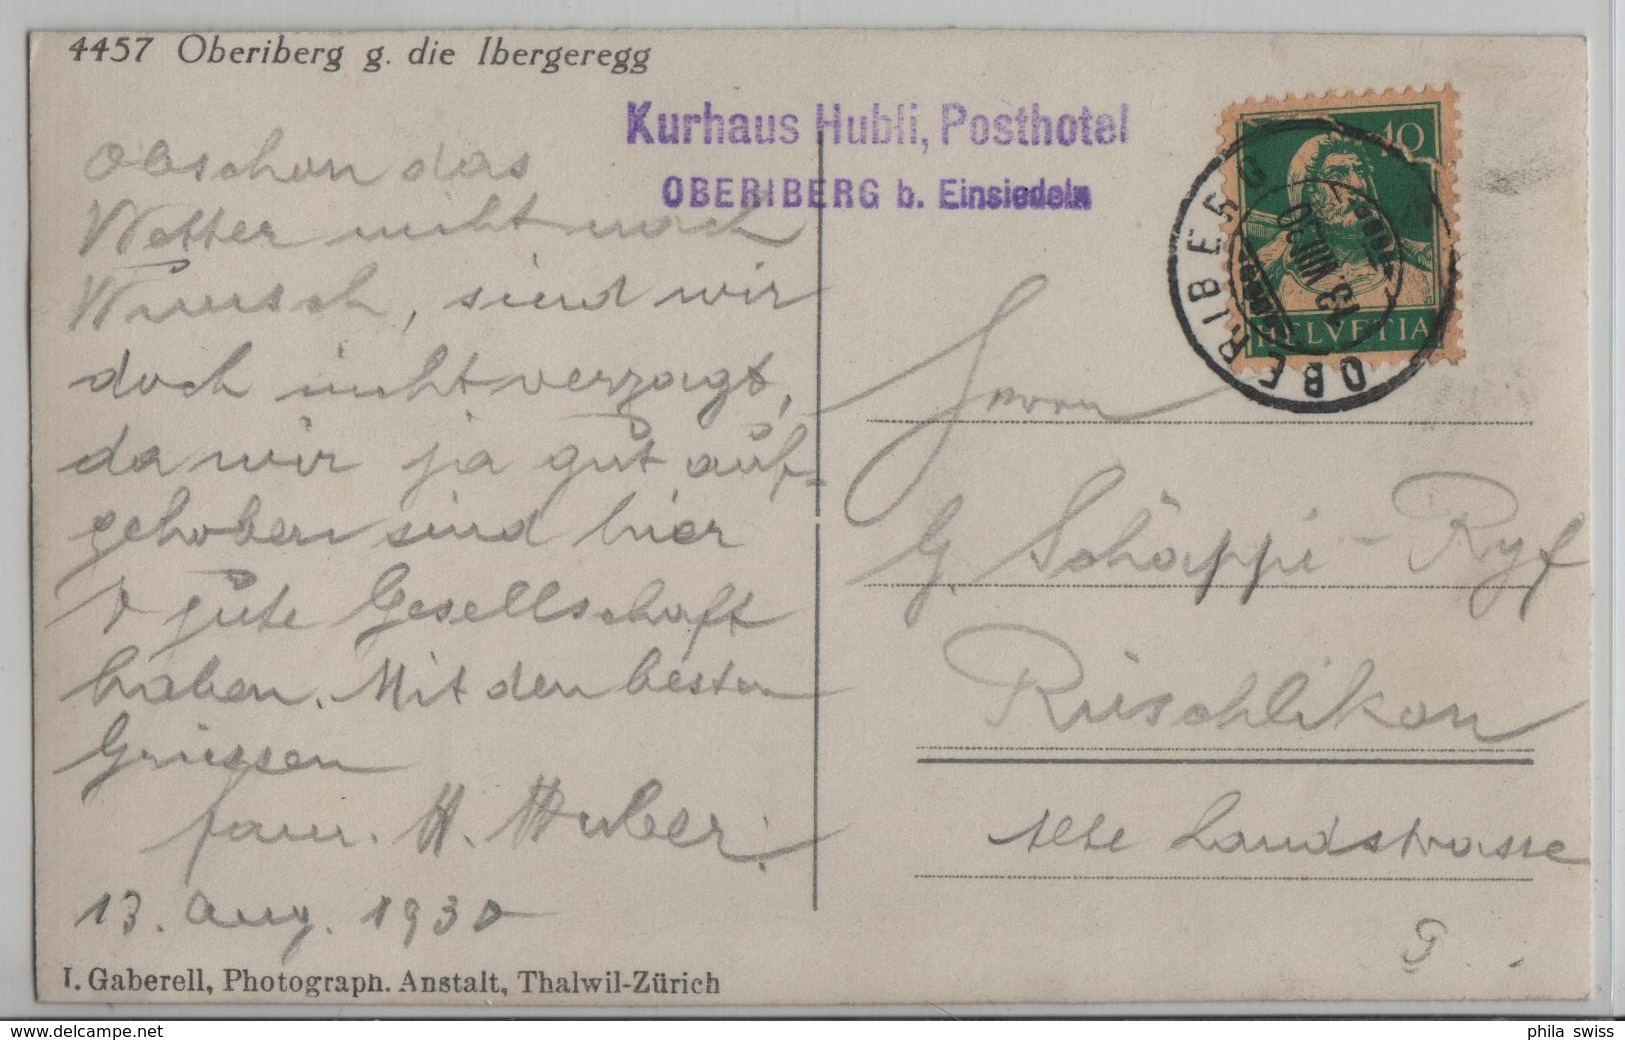 4457 Oberiberg g. die Ibergeregg
Kurhaus Hubli, Posthotel
OBERIBERG b. Einsiedeln
Obschon das
Wetter nicht nach
Wunsch, sind wir
doch nicht verzagt,
da wir ja gut auf-
gehoben sind hier
& gute Gesellschaft
haben. Mit den besten
Griessen
fam. H. Huber.
13. Aug. 1930
I. Gaberell, Photograph. Anstalt, Thalwil-Zürich
10
HELVETIA
OBERIBERG
13. VIII 30
Herrn
G. Schäppi-Ryf
Rüschlikon
Alte Landstrasse
G.
www.delcampe.net
phila swiss